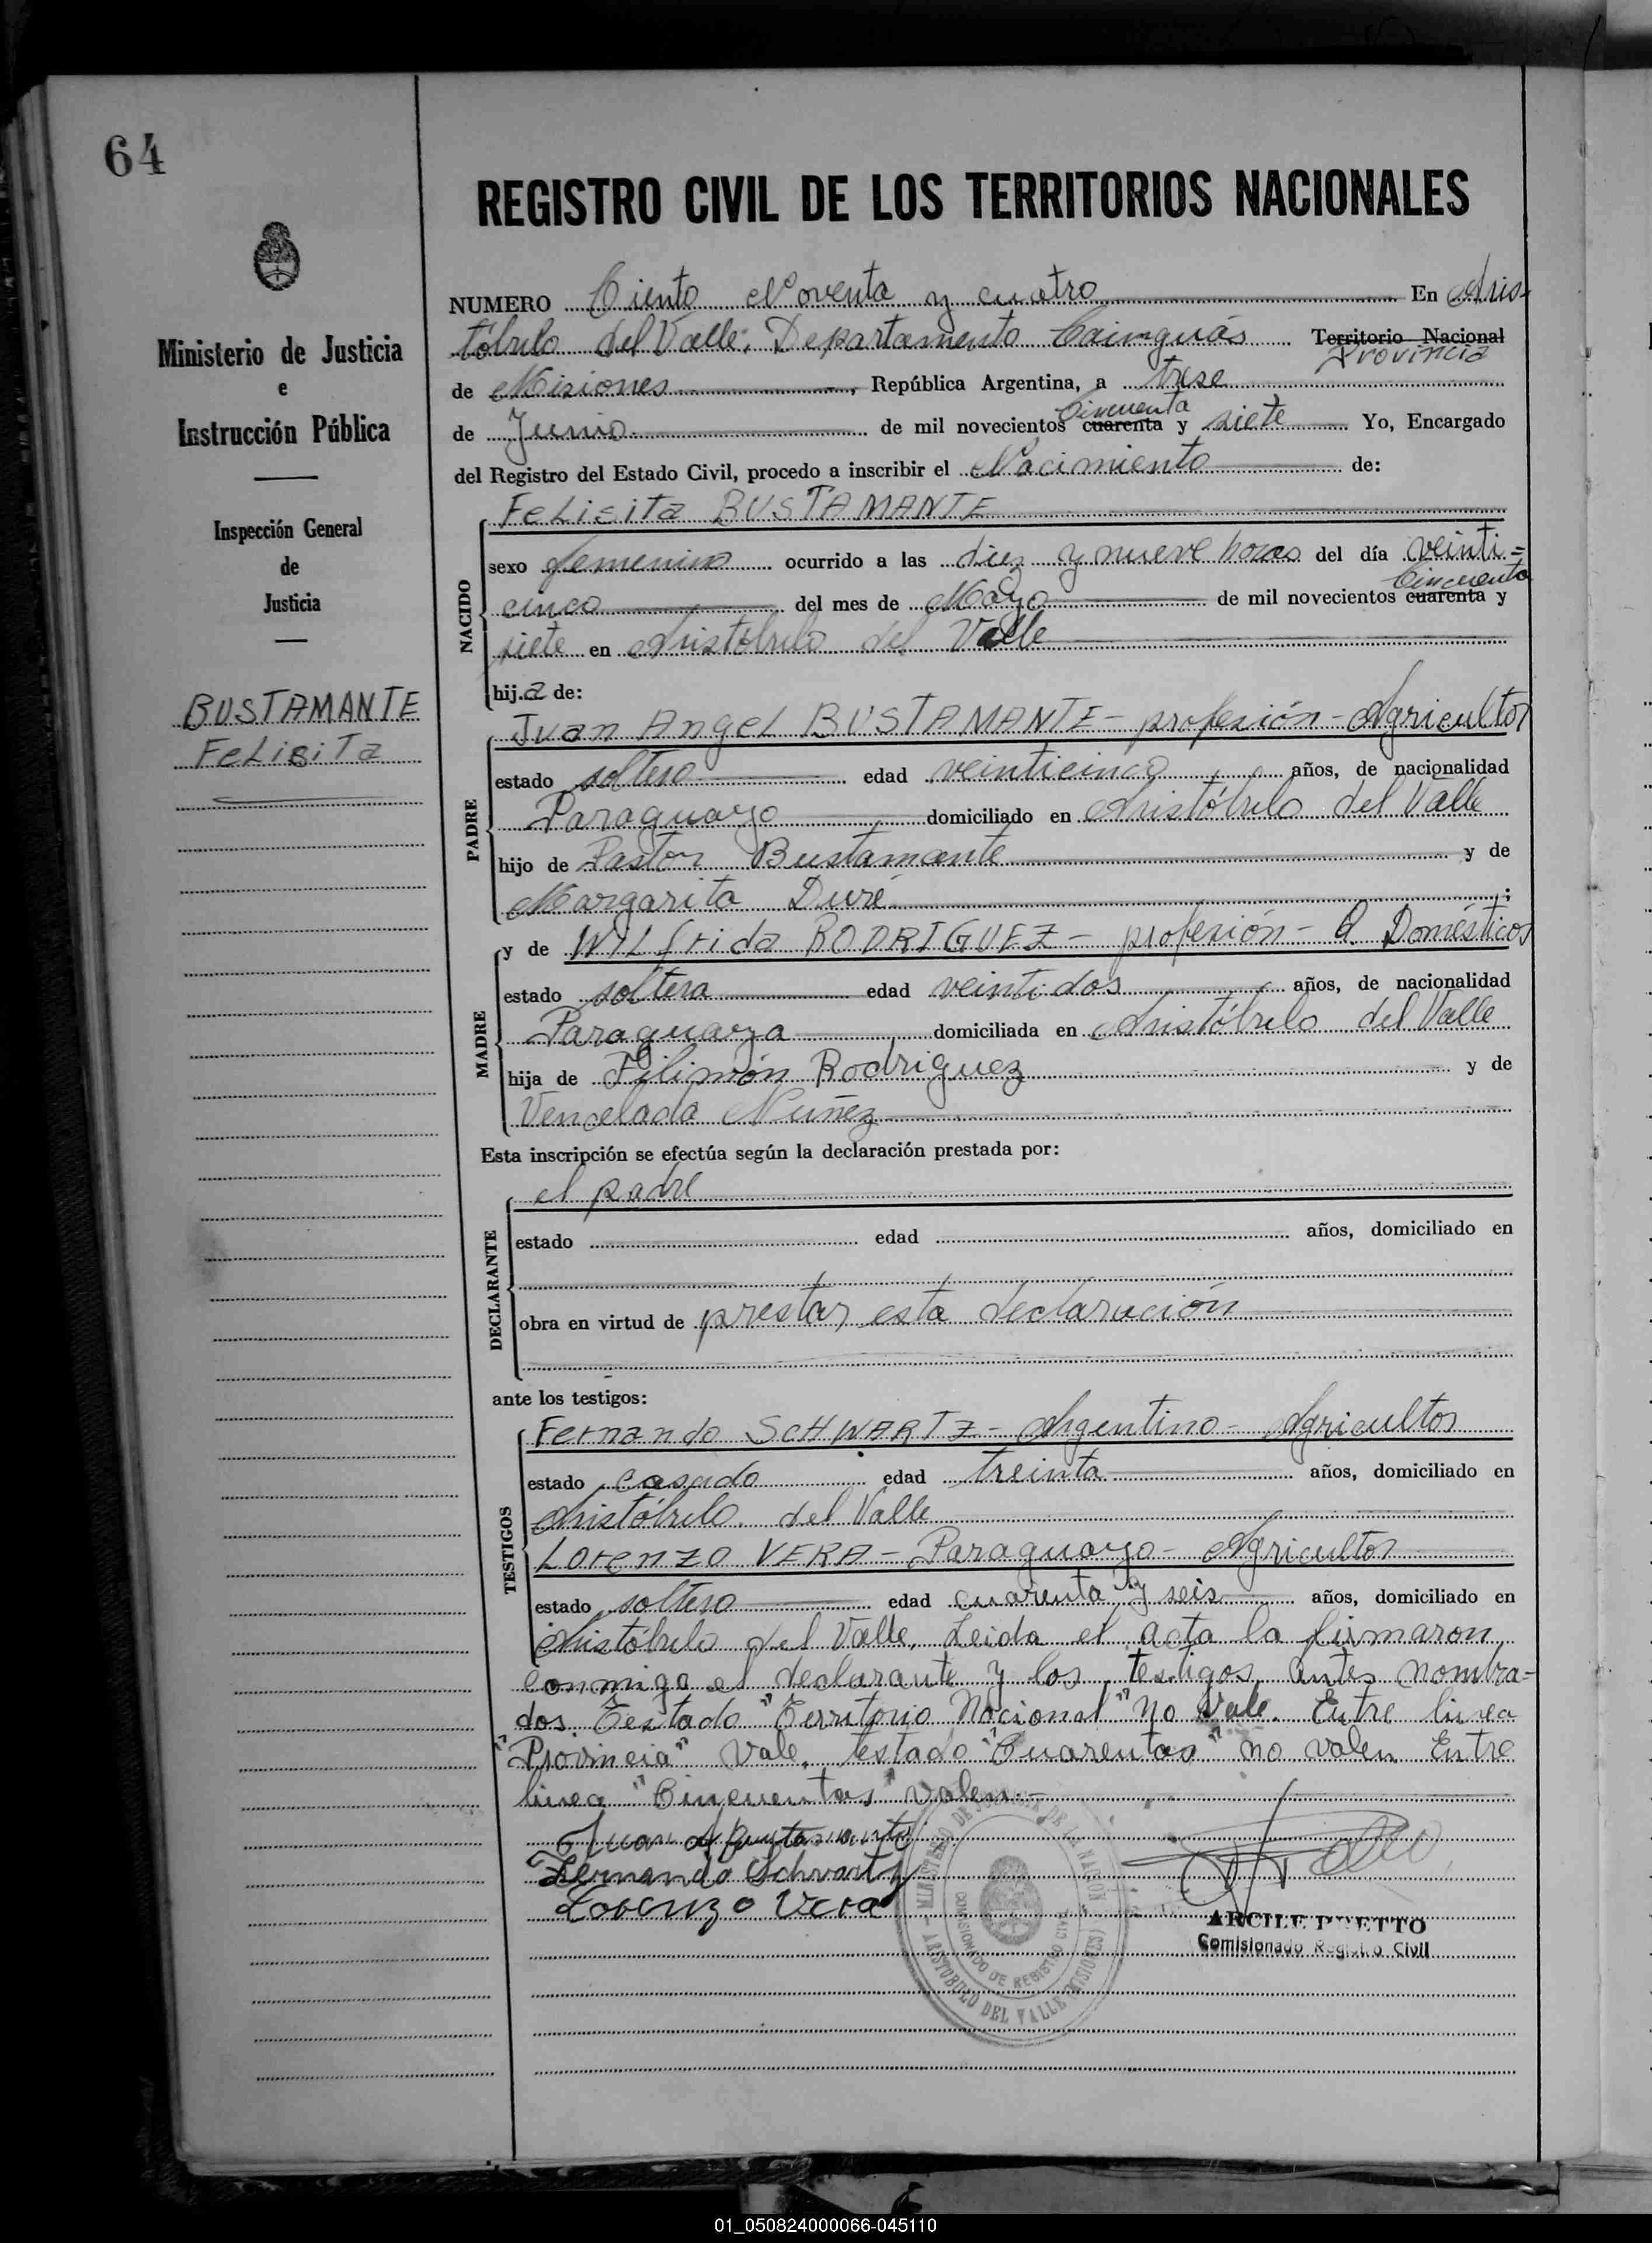 64
REGISTRO CIVIL DE LOS TERRITORIOS NACIONALES
Ministerio de Justicia
e
Instrucción Pública
Inspección General
de
Justicia
BUSTAMANTE
Felisita
NUMERO Ciento Noventa y cuatro En Aris-
tóbulo del Valle, Departamento Cainguás Territorio Nacional
Provincia
de Misiones, República Argentina, a trese
Cincuenta
de Junio de mil novecientos cuarenta y siete Yo, Encargado
del Registro del Estado Civil, procedo a inscribir el Nacimiento de:
Felisita BUSTAMANTE
NACIDO
sexo femenino ocurrido a las diez y nueve horas del día veinti=
Cincuenta
cinco del mes de Mayo de mil novecientos cuarenta y
siete en Aristóbulo del Valle
hija de:
Juan Angel BUSTAMANTE - profesión - Agricultor
PADRE
estado soltero edad veinticinco años, de nacionalidad
Paraguayo domiciliado en Aristóbulo del Valle
hijo de Pastor Bustamante y de
Margarita Duré;
y de Wilfrida RODRIGUEZ - profesión - Q. Domésticos
MADRE
estado soltera edad veintidos años, de nacionalidad
Paraguaya domiciliada en Aristóbulo del Valle
hija de Filimón Rodriguez y de
Vencelada Nuñez
Esta inscripción se efectúa según la declaración prestada por:
el padre
DECLARANTE
estado edad años, domiciliado en
obra en virtud de prestar esta declaración
ante los testigos:
Fernando SCHWARTZ - Argentino - Agricultor
TESTIGOS
estado casado edad treinta años, domiciliado en
Aristóbulo del Valle
Lorenzo VERA - Paraguayo - Agricultor
estado soltero edad cuarenta y seis años, domiciliado en
Aristóbulo del Valle, Leida el acta la firmaron
conmigo el declarante y los testigos antes nombra=
dos. Testado "Territorio Nacional" no vale. Entre linea
"Provincia" vale. testado "Cuarentas" no valen Entre
linea "Cincuentas" valen.-
Juan A Bustamante
Fernando Schvartz
Lorenzo Vera
MINISTERIO DE JUSTICIA DE LA NACION
COMISIONADO DE REGISTRO CIVIL
ARISTOBULO DEL VALLE (MISIONES)
ARCILE
Comisionado Registro Civil
01_050824000066-045110